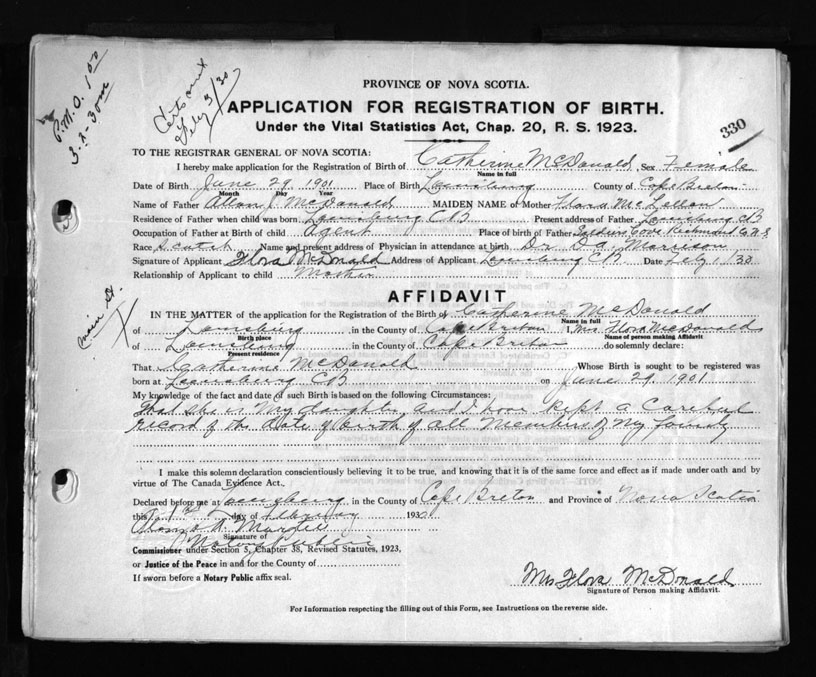 P.M.O. 1 00
3-2-30
Feby 3/30
PROVINCE OF NOVA SCOTIA.
APPLICATION FOR REGISTRATION OF BIRTH.
Under the Vital Statistics Act, Chap. 20, R. S. 1923.
330
TO THE REGISTRAR GENERAL OF NOVA SCOTIA:
I hereby make application for the Registration of Birth of Catherine McDonald Sex Female
Name in full
Date of Birth June 29 1901 Place of Birth Louisburg County of Cape Breton
Month Day Year
Name of Father Allan J. McDonald MAIDEN NAME of Mother Flora McLellan
Residence of Father when child was born Louisburg CB Present address of Father Louisburg CB
Occupation of Father at Birth of child Agent Place of birth of Father Cove Richmond Co N.S
Race Scotch Name and present address of Physician in attendance at birth Dr Da. Morrison
Signature of Applicant Flora McDonald Address of Applicant Louisburg CB. Date Feby 1/30
Relationship of Applicant to child Mother
AFFIDAVIT
IN THE MATTER of the application for the Registration of the Birth of Catherine McDonald
Name in full
of Louisburg in the County of Cape Breton I, Mrs Flora McDonald
Birth place Name of person making Affidavit
of Louisburg in the County of Cape Breton do solemnly declare:
Present residence
That Catherine McDonald Whose Birth is sought to be registered was
born at Louisburg CB on June 29 1901
My knowledge of the fact and date of such Birth is based on the following Circumstances:
That she is My daughter and I have kept a Careful
record of the date of birth of all Members of My family
I make this solemn declaration conscientiously believing it to be true, and knowing that it is of the same force and effect as if made under oath and by
virtue of The Canada Evidence Act.
Declared before me at Louisburg in the County of Cape Breton and Province of Nova Scotia
this 1st day of February 1930
Signature of
Notary Public
Commissioner under Section 5, Chapter 38, Revised Statutes, 1923,
or Justice of the Peace in and for the County of
If sworn before a Notary Public affix seal.
Mrs Flora McDonald
Signature of Person making Affidavit.
For Information respecting the filling out of this Form, see Instructions on the reverse side.